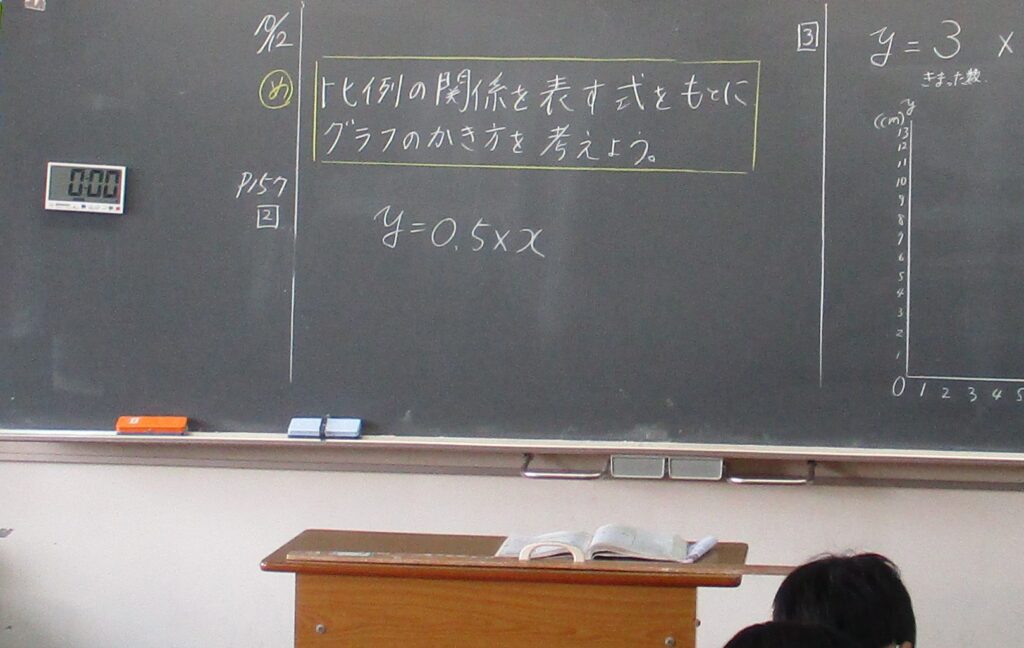 10/12
め
比例の関係を表す式をもとに
グラフのかき方を考えよう。
P157
2
y=0.5×x
0:00
3
y=3×
きまった数
y
(cm)
13
12
11
10
9
8
7
6
5
4
3
2
1
0 1 2 3 4 5